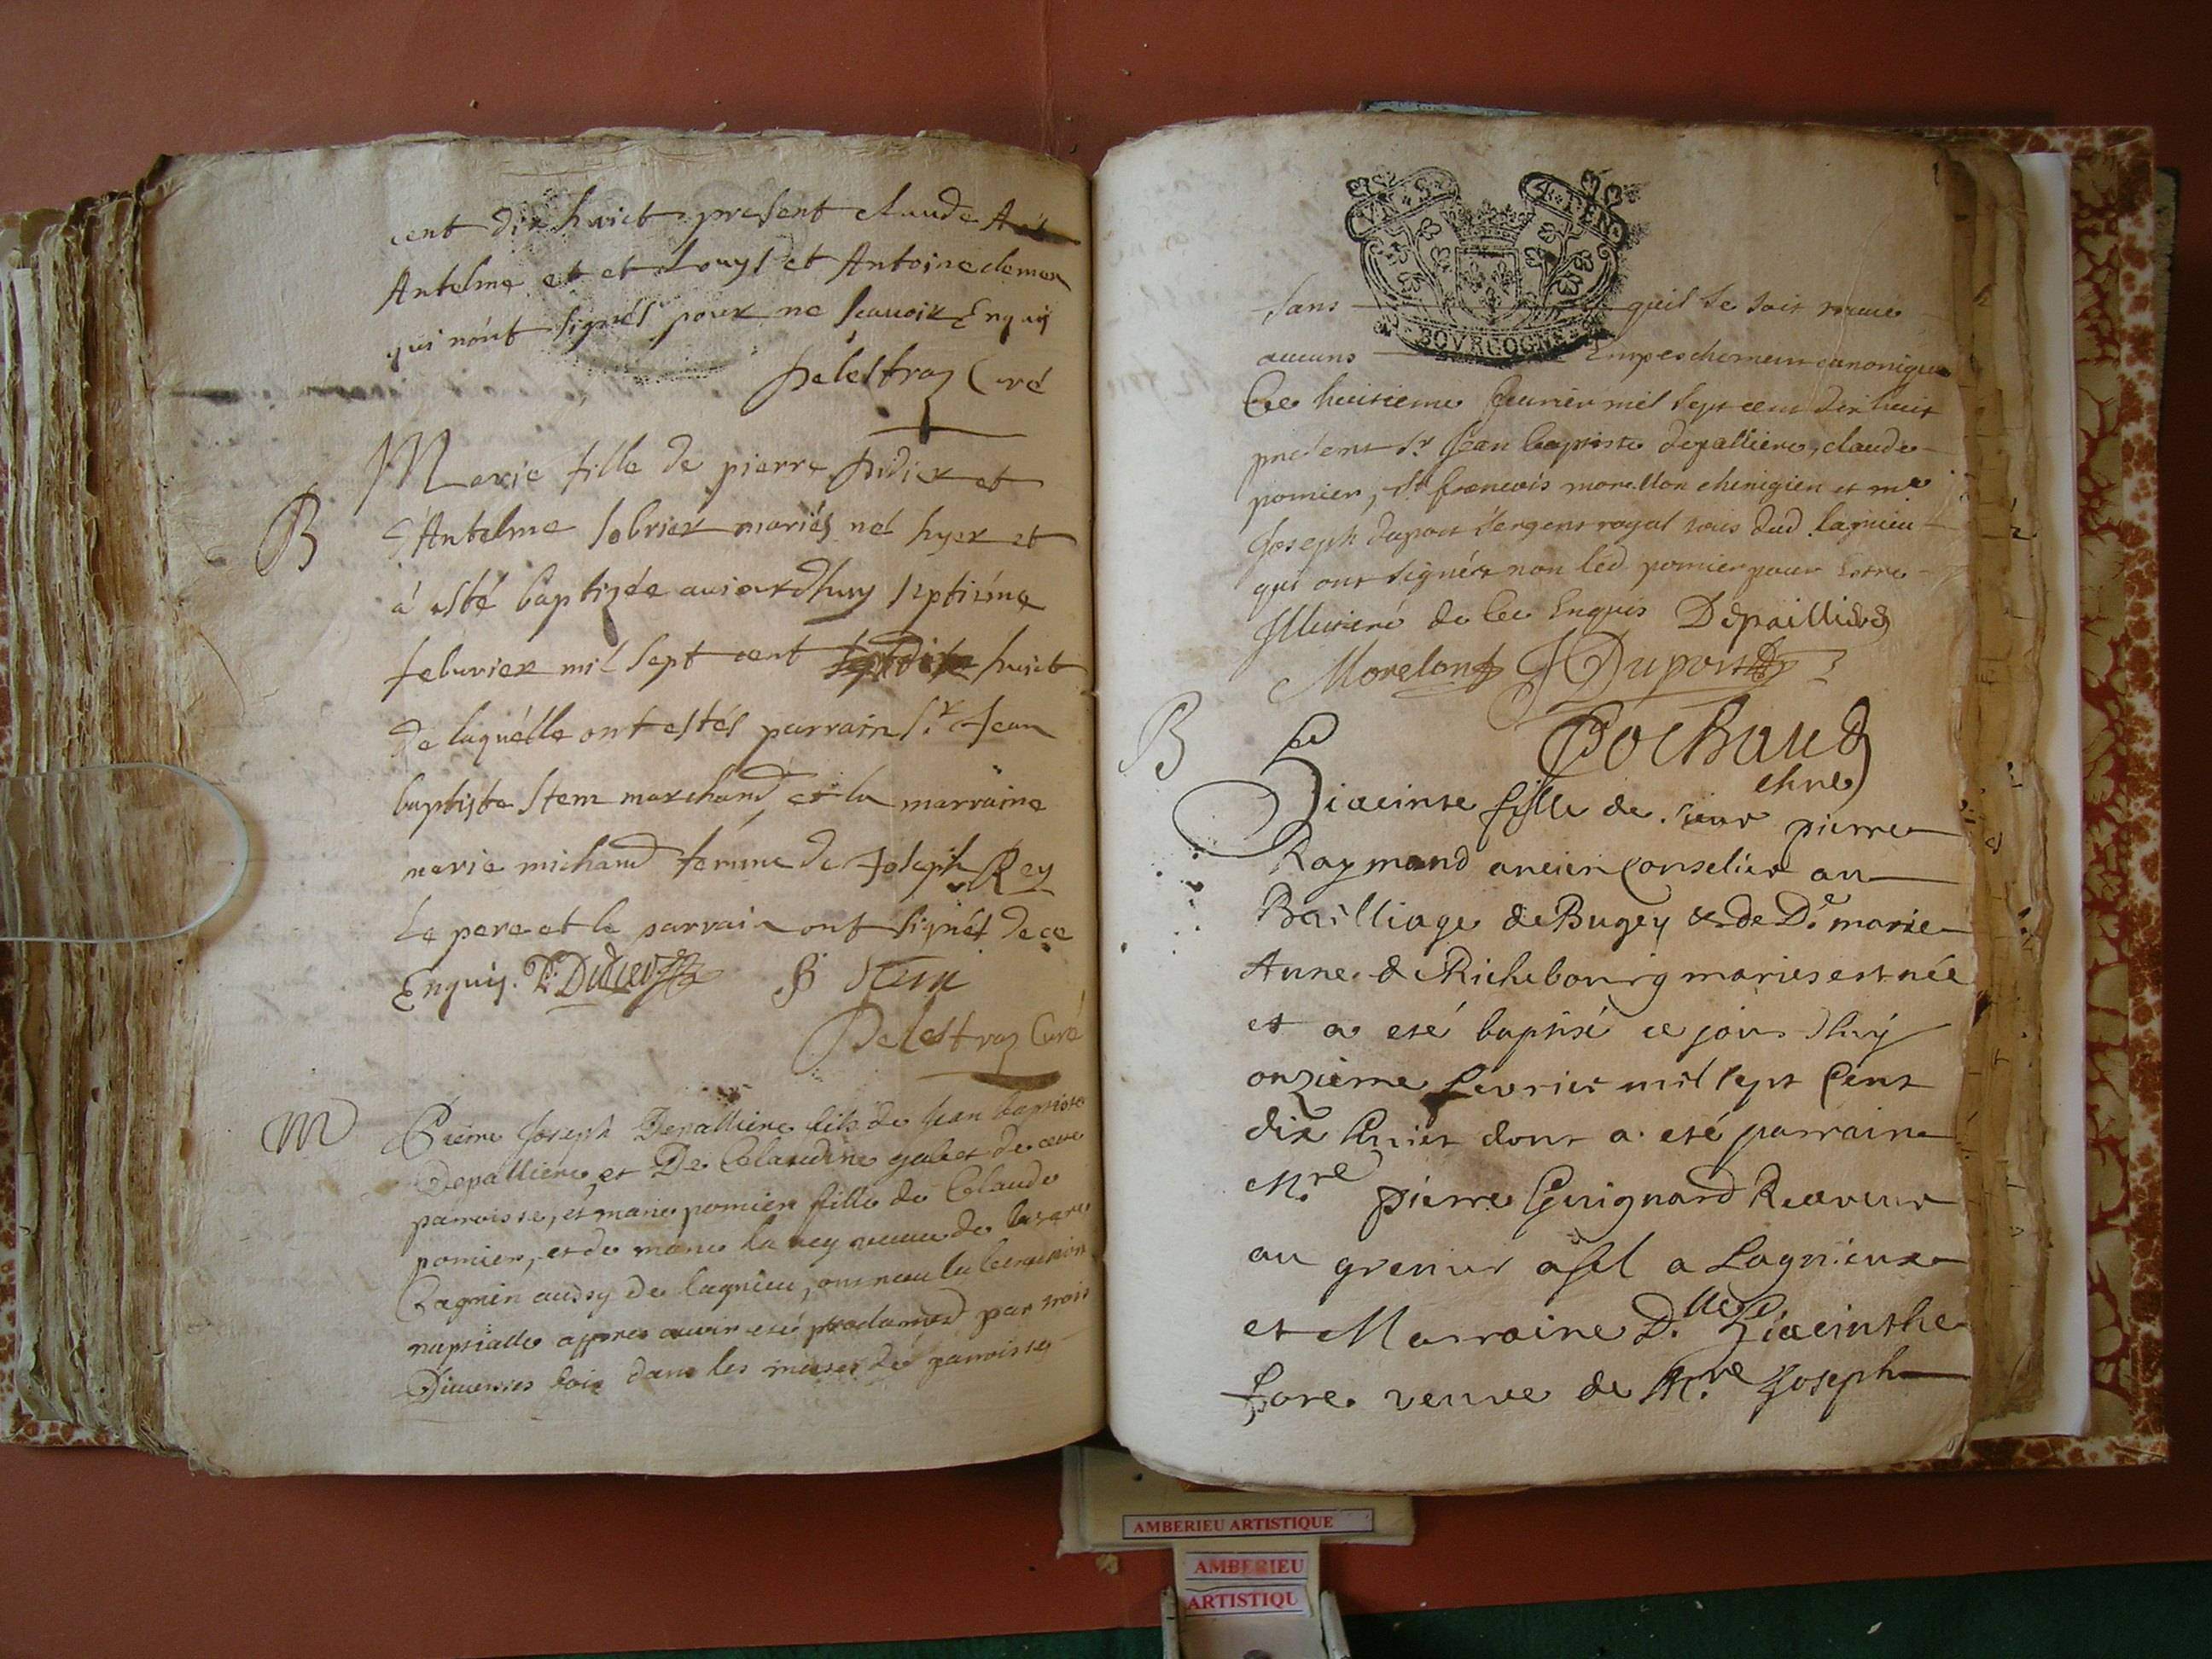 cent dix huict present claude
Antelme et et Louys et Antoine
qui n'ont signés pour ne scauoir Enquis
Delestraz Curé
B
Marie fille de pierre Didier et
d'Antelme sobrier mariés né hyer et
à esté baptizée auiourdhuy septiéme
feburier mil sept cent huict
de laquélle ont estés parrain Sr. Jean
baptiste Stem marchand et la marraine
marie michaud femme de Joseph Rey
Le pere et le parrain ont signés de ce
Enquis. P. Didier Stem
Delestraz Curé
M
Pierre Joseph Depalliere fils de Jean baptiste
Depalliere, et De Claudine gabet de cette
parroisse, et marie pomier fille de Claude
pomier, et de marie la rey veuue de
Cagnin aussy de lagnieu, ont receu la benediction
nuptialle appres auoir esté proclamés par trois
Diuerses fois dans les messes de parroisse
VN S 4 DEN
sans quil se soit trouué
BOVRGOGNE
aucuns Empeschement canonique
Ce huitieme feurier mil sept cent dix huit
present Sr Jean baptiste depalliere, claude
pomier, Sr francois morellon chirurgien et me
Joseph duport sergent royal tous dud. lagnieu
qui ont signés non led pomier pour Estre
Illiteré de ce Enquis Depaillieres
Morelon J Duport
Cochaud
B
Hiacinte fille de sieur pierre
Raymond ancien conselier au
Bailliage de Bugey & de De. marie
Anne de Richebourg maries est née
et a eté baptisé ce jourdhuy
onzieme fevrier mil sept Cent
dix huit dont a eté parrain
Mre pierre Guignard Receveur
au grenier a sel a Lagnieux
et Marraine D.lle Hiacinthe
fore veuve de Mre Joseph
AMBERIEU ARTISTIQUE
AMBERIEU
ARTISTIQU